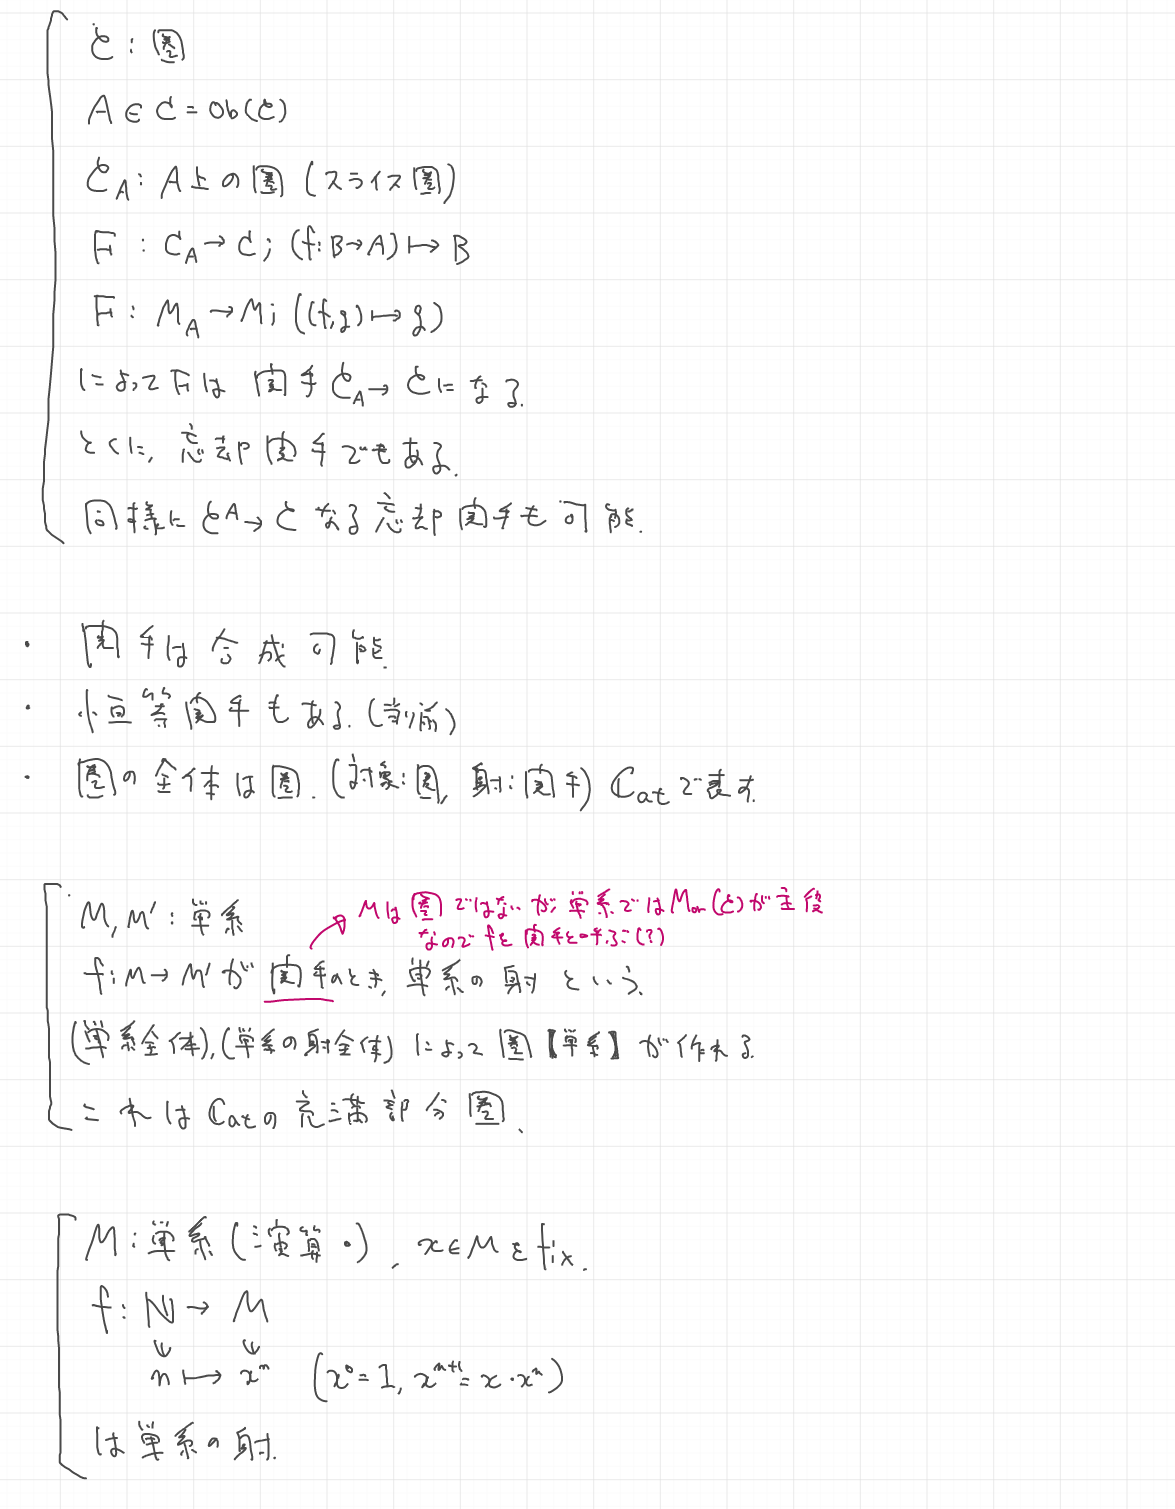 𝒞 : 圏
A ∈ C = Ob(𝒞)
𝒞_A : A上の圏 (スライス圏)
F : C_A → C ; (f: B→A) ↦ B
F : M_A → M ; ((f,g) ↦ g)
によってFは 関手 𝒞_A → 𝒞 になる.
とくに, 忘却関手でもある.
同様に 𝒞^A → 𝒞 なる忘却関手も可能.
・ 関手は合成可能.
・ 恒等関手もある. (当り前)
・ 圏の全体は圏. (対象:圏, 射:関手) ℂat で表す.
M, M' : 単系
Mは圏ではないが, 単系ではMor(𝒞)が主役
なので fを関手と呼ぶ(?)
f: M → M' が 関手のとき, 単系の射 という.
(単系全体), (単系の射全体) によって 圏【単系】が作れる.
これは ℂatの充満部分圏.
M : 単系 (演算 ・), x∈M を fix.
f : ℕ → M
n ↦ xⁿ (x⁰ = 1, xⁿ⁺¹ = x・xⁿ)
は単系の射.